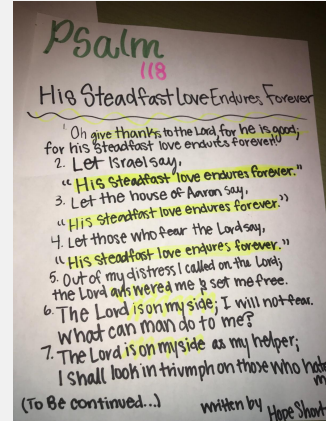 Psalm
118
His Steadfast Love Endures Forever
1. Oh give thanks to the Lord, for he is good;
for his steadfast love endures forever!
2. Let Israel say,
"His Steadfast love endures forever."
3. Let the house of Aaron say,
"His Steadfast love endures forever."
4. Let those who fear the Lord say,
"His Steadfast love endures forever."
5. Out of my distress I called on the Lord;
the Lord answered me & set me free.
6. The Lord is on my side; I will not fear.
What can man do to me?
7. The Lord is on my side as my helper;
I shall look in triumph on those who hate
m
(To Be continued...) written by Hope Short